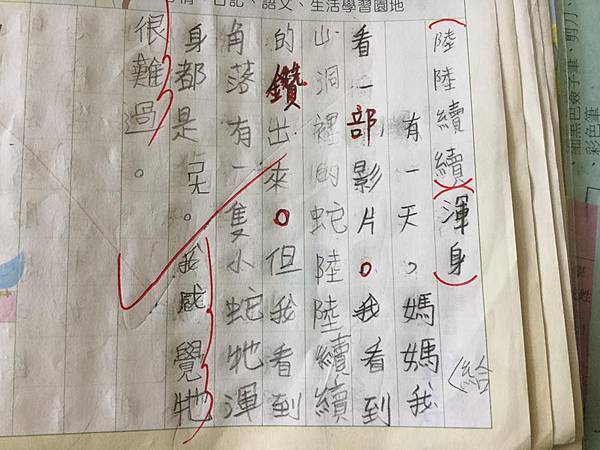 日記、語文、生活學習園地
（陸陸續續）（渾身）
〈給
有一天。媽媽我
看一部影片。我看到
山洞裡的蛇陸陸續續
的鑽出來。但我看到
角落有一隻小蛇牠渾
身都是。我感覺牠
很難過。
剪刀、
彩色筆